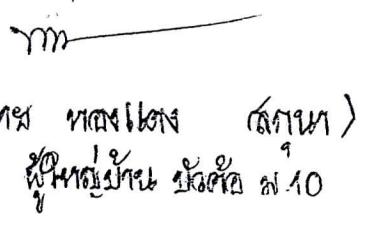 ทองแดง สกุนา)
ผู้ใหญ่บ้าน บัวค้อ ม.10